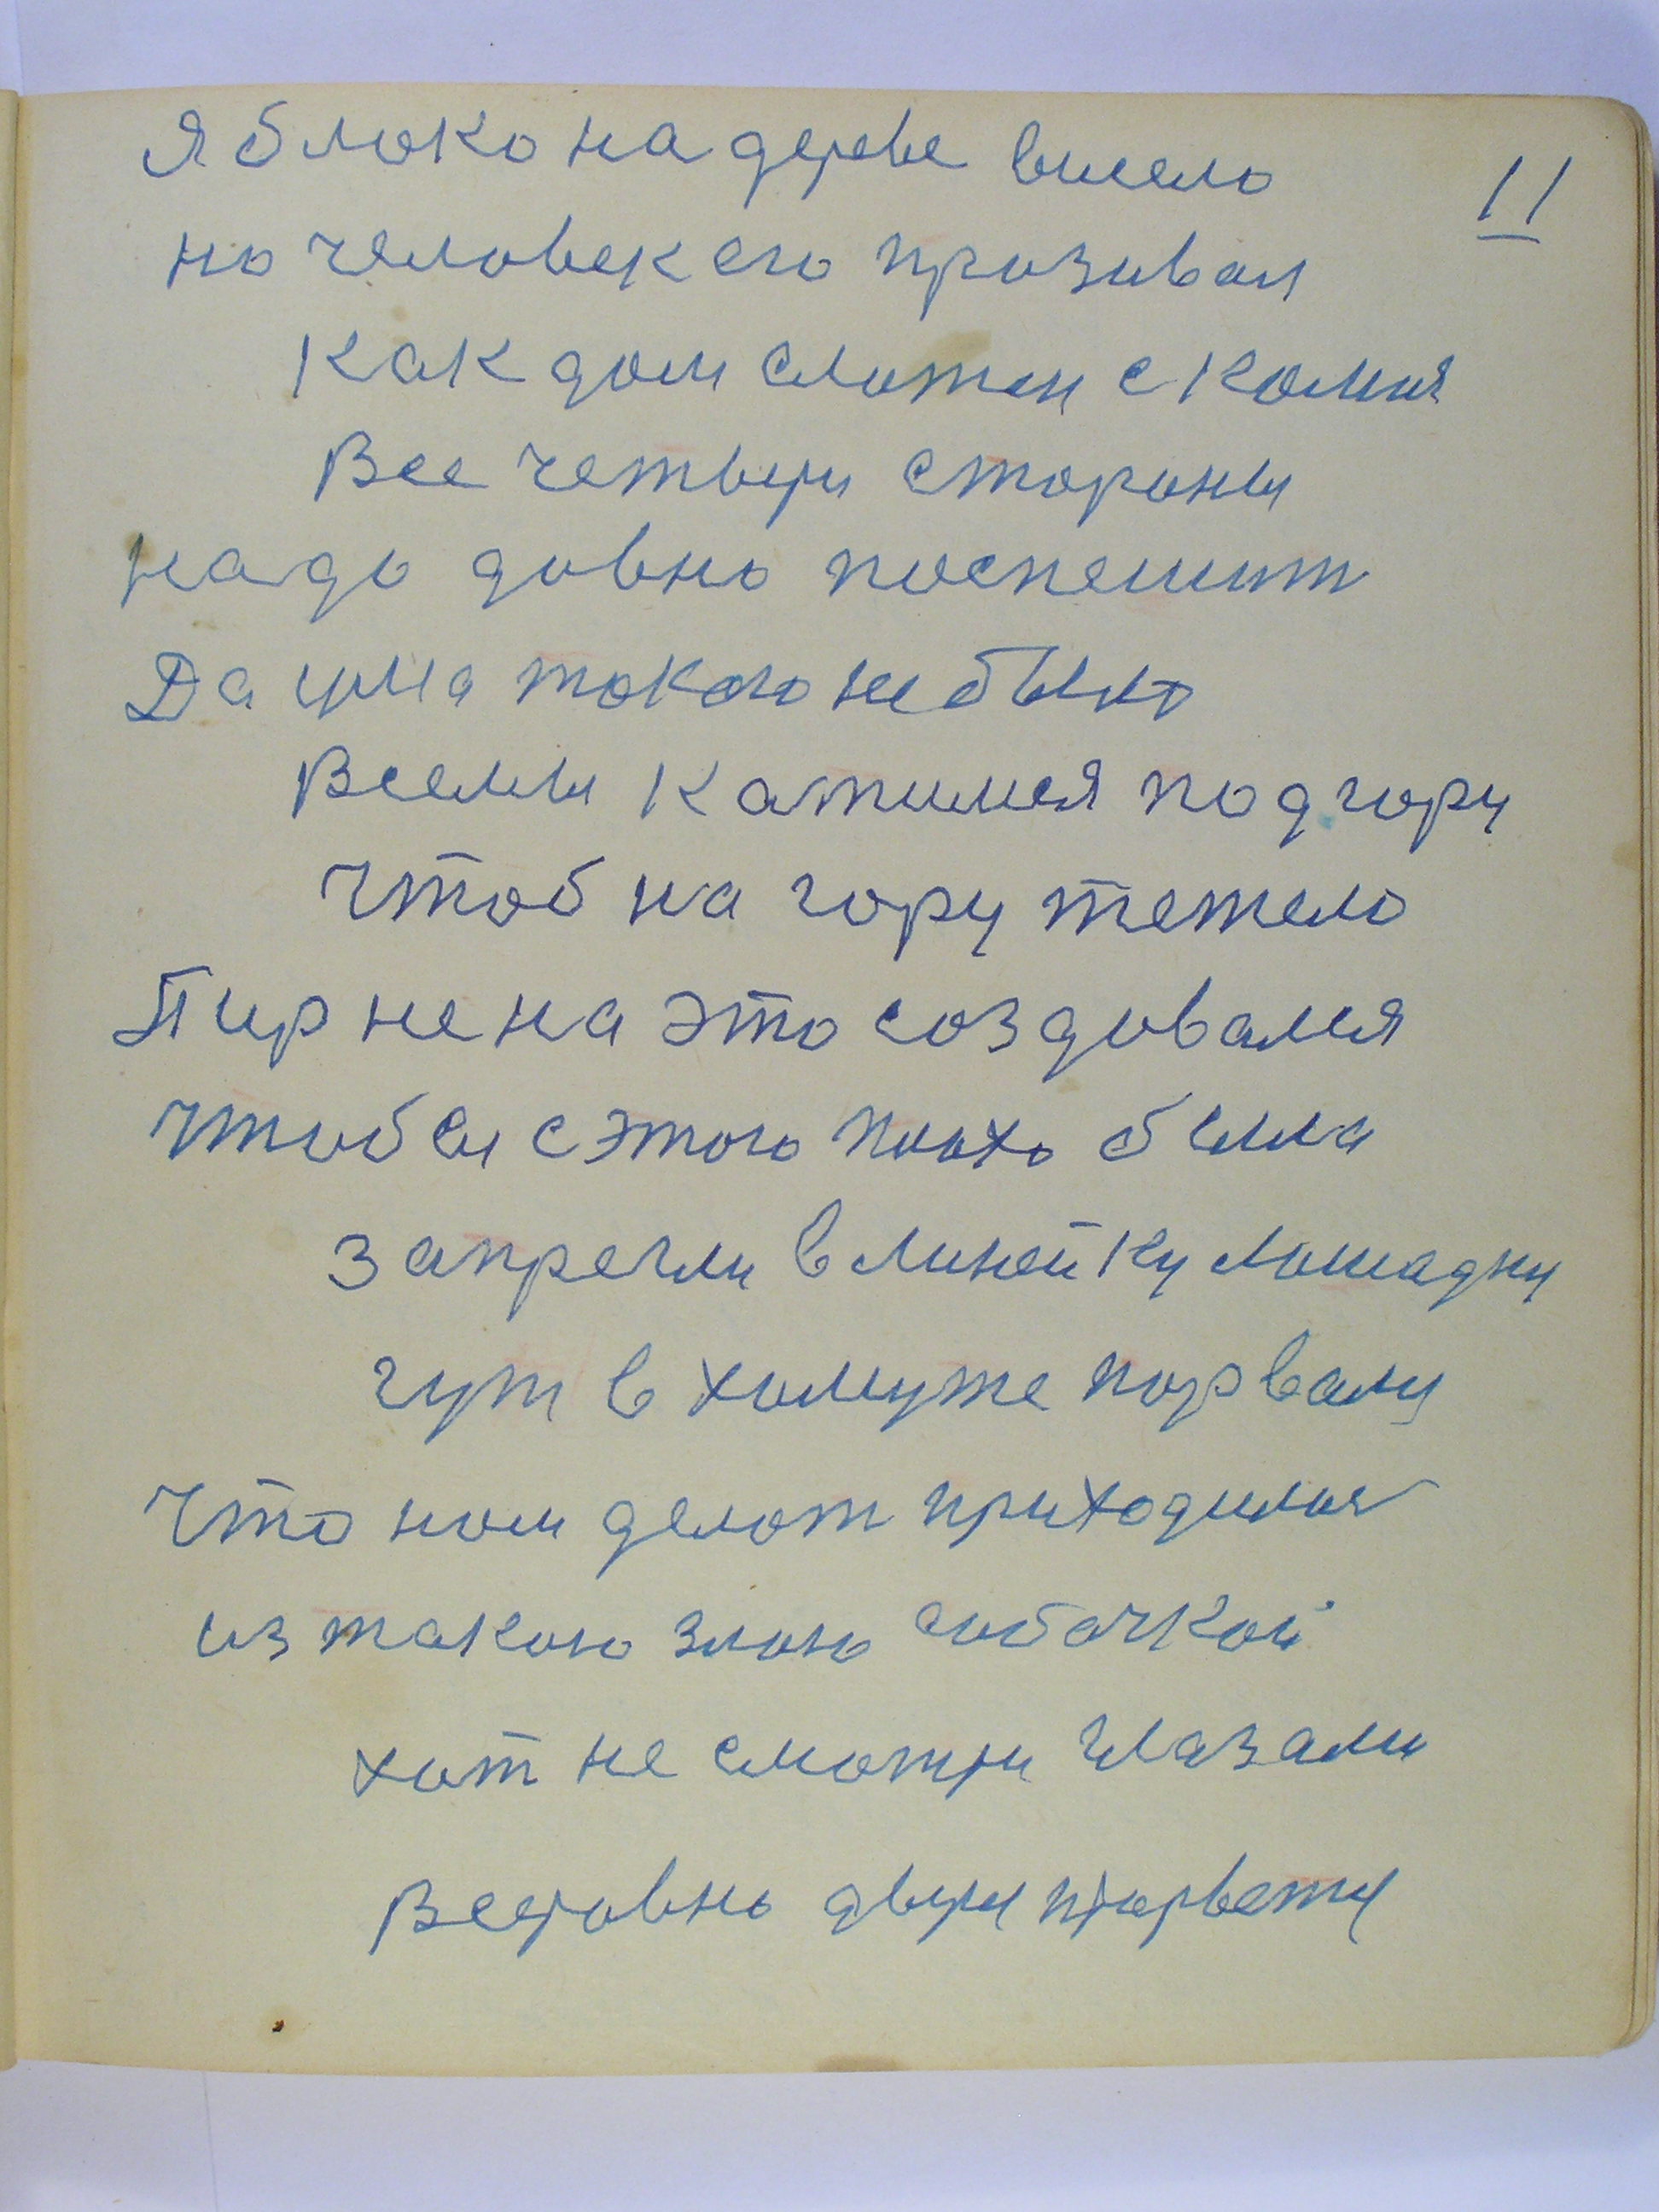 Яблоко на дереве висело
11
но человек его прозивал
как дом сложен с комня
Все четыри стороны
надо довно поспешит
Да ума токого не было
Всемы катимся под гору
чтоб на гору тежело
Пир не на это создовался
чтобы с этого плохо была
запрегли в линейку лошадку
гуж в хомуте порвали
что ном делот приходился
из такою злою собачкой
хот не смотри глазами
Всеровно двери